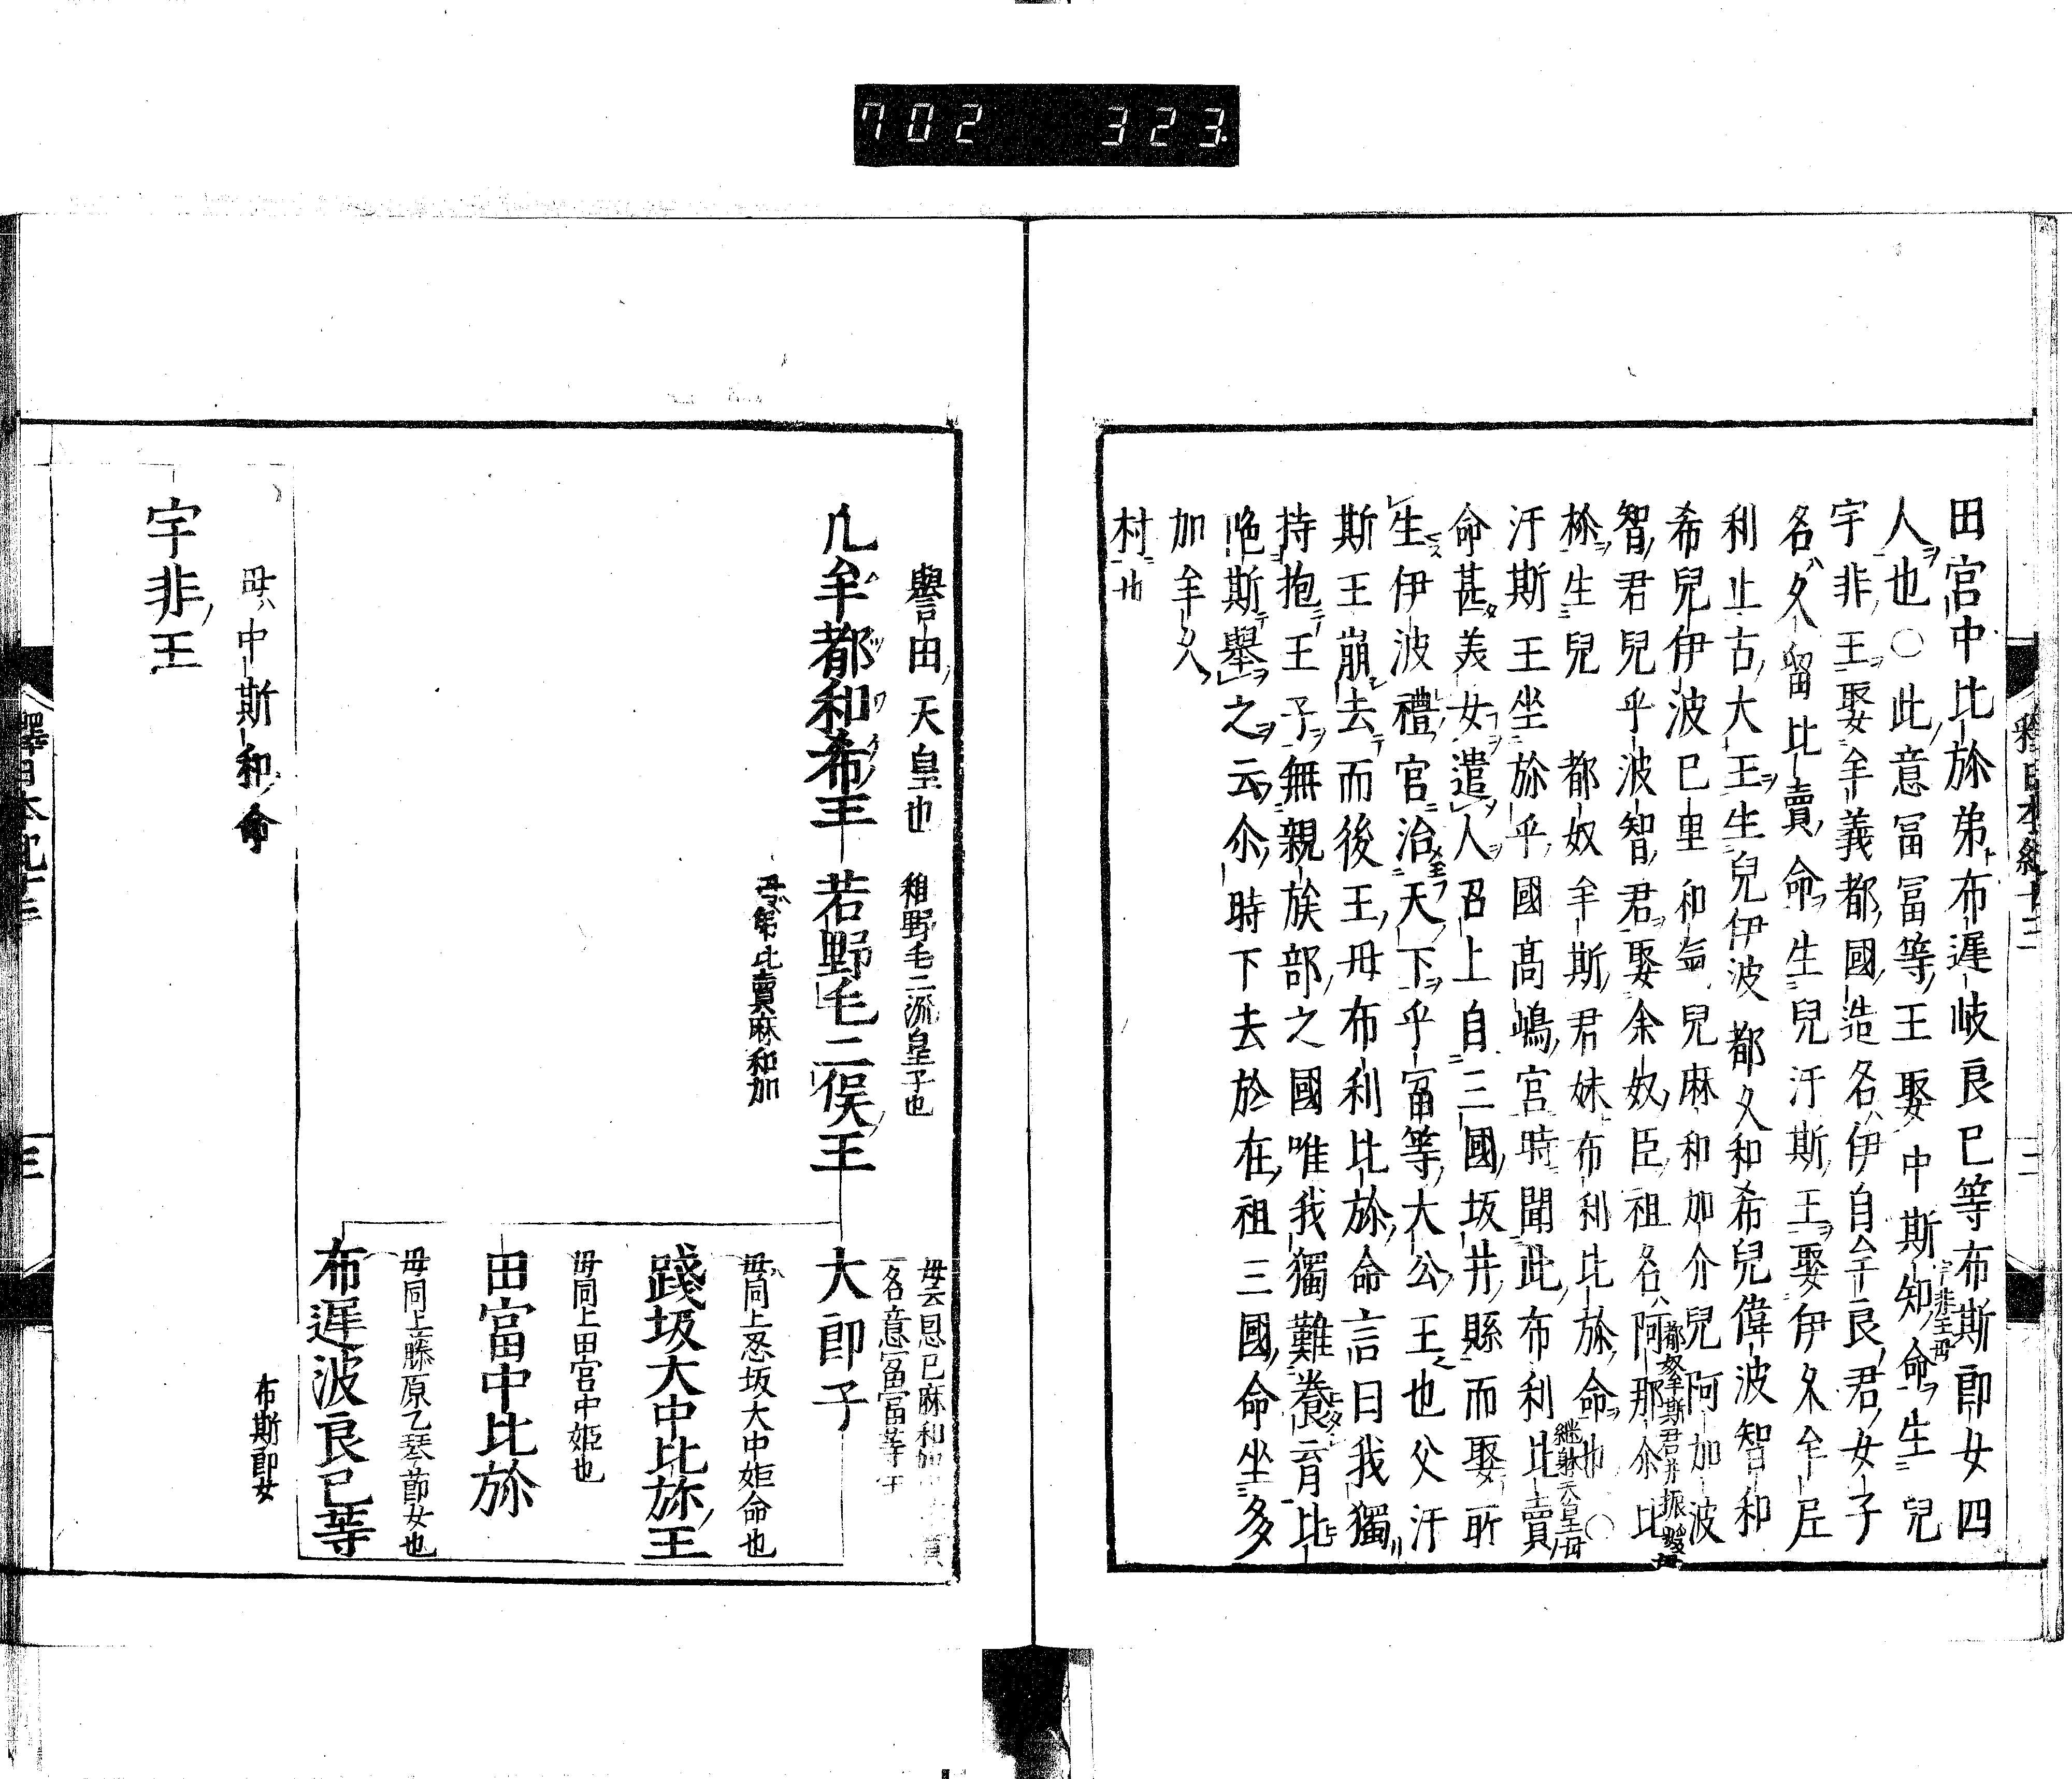 702 323
釋日本紀十三
二
田宮中比弥弟布遅岐良已等布斯郎女四
人也○此意冨冨等王娶中斯知命生兒
宇非王母
宇非王娶牟義都國造名伊自牟良君女子
名久留比賣命生兒汙斯王娶伊久牟尼
利止古大王生兒伊波都久和希兒偉波智和
希兒伊波已里和氣兒麻和加介兒阿加波
智君兒乎波智君娶余奴臣祖名阿那尒比
都奴牟斯君并振媛母
弥生兒都奴牟斯君妹布利比弥命也○
継躰天皇母
汙斯王坐弥乎國高嶋宮時聞此布利比賣
命甚美女遣人召上自三國坂井縣而娶所
生伊波禮宮治天下乎富等大公王也父汙
斯王崩去而後王母布利比弥命言曰我獨
持抱王子無親族部之國唯我獨難養育比
陁斯舉之云尒時下去於在祖三國命坐多
加牟久
村也
譽田天皇也
凢牟都和希王
稚野毛二派皇子也
若野毛二俣王
母弟比賣麻和加
母云恩已麻和加
一名意冨富等王
大郎子
母同上忍坂大中姫命也
踐坂大中比弥王
母同上田宮中姫也
田富中比弥
母同上藤原乙琴節女也
布遅波良已等
布斯郎女
母中斯和命
宇非王
釋日本紀十三
三